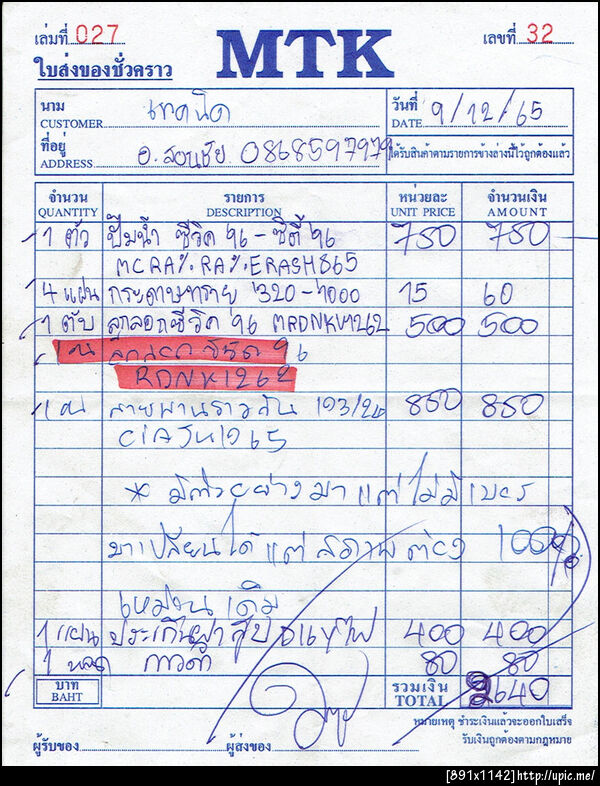 เล่มที่ 027
MTK
เลขที่ 32
ใบส่งของชั่วคราว
นาม
CUSTOMER
เทคนิค
วันที่
DATE 9/12/65
ที่อยู่
ADDRESS
อ. สอนชัย 0868597979
ได้รับสินค้าตามรายการข้างล่างนี้ไว้ถูกต้องแล้ว
จำนวน รายการ หน่วยละ จำนวนเงิน
QUANTITY DESCRIPTION UNIT PRICE AMOUNT
1 ตัว ปั๊มน้ำ ซีวิค '96 - ซิตี้ '96 750 750
4 แผ่น กระดาษทราย '320-1000 15 60
1 ตับ ลูกลอกซีวิค '96 500 500
96
RDNK1262
สายพานราวลิ้น 850 850
* มีตัวอย่างมา แต่ ไม่มีเบอร์
มาเปลี่ยนได้ แต่ สภาพ ต้อง 100%
เหมือนเดิม
1 แผ่น ประเก็นฝาสูบ 400 400
1 หลอด กาวดำ 80 80
บาท
BAHT
รวมเงิน
TOTAL
2640
หมายเหตุ ชำระเงินแล้วจะออกใบเสร็จ
รับเงินถูกต้องตามกฎหมาย
ผู้รับของ ผู้ส่งของ
[891x1142]http://upic.me/